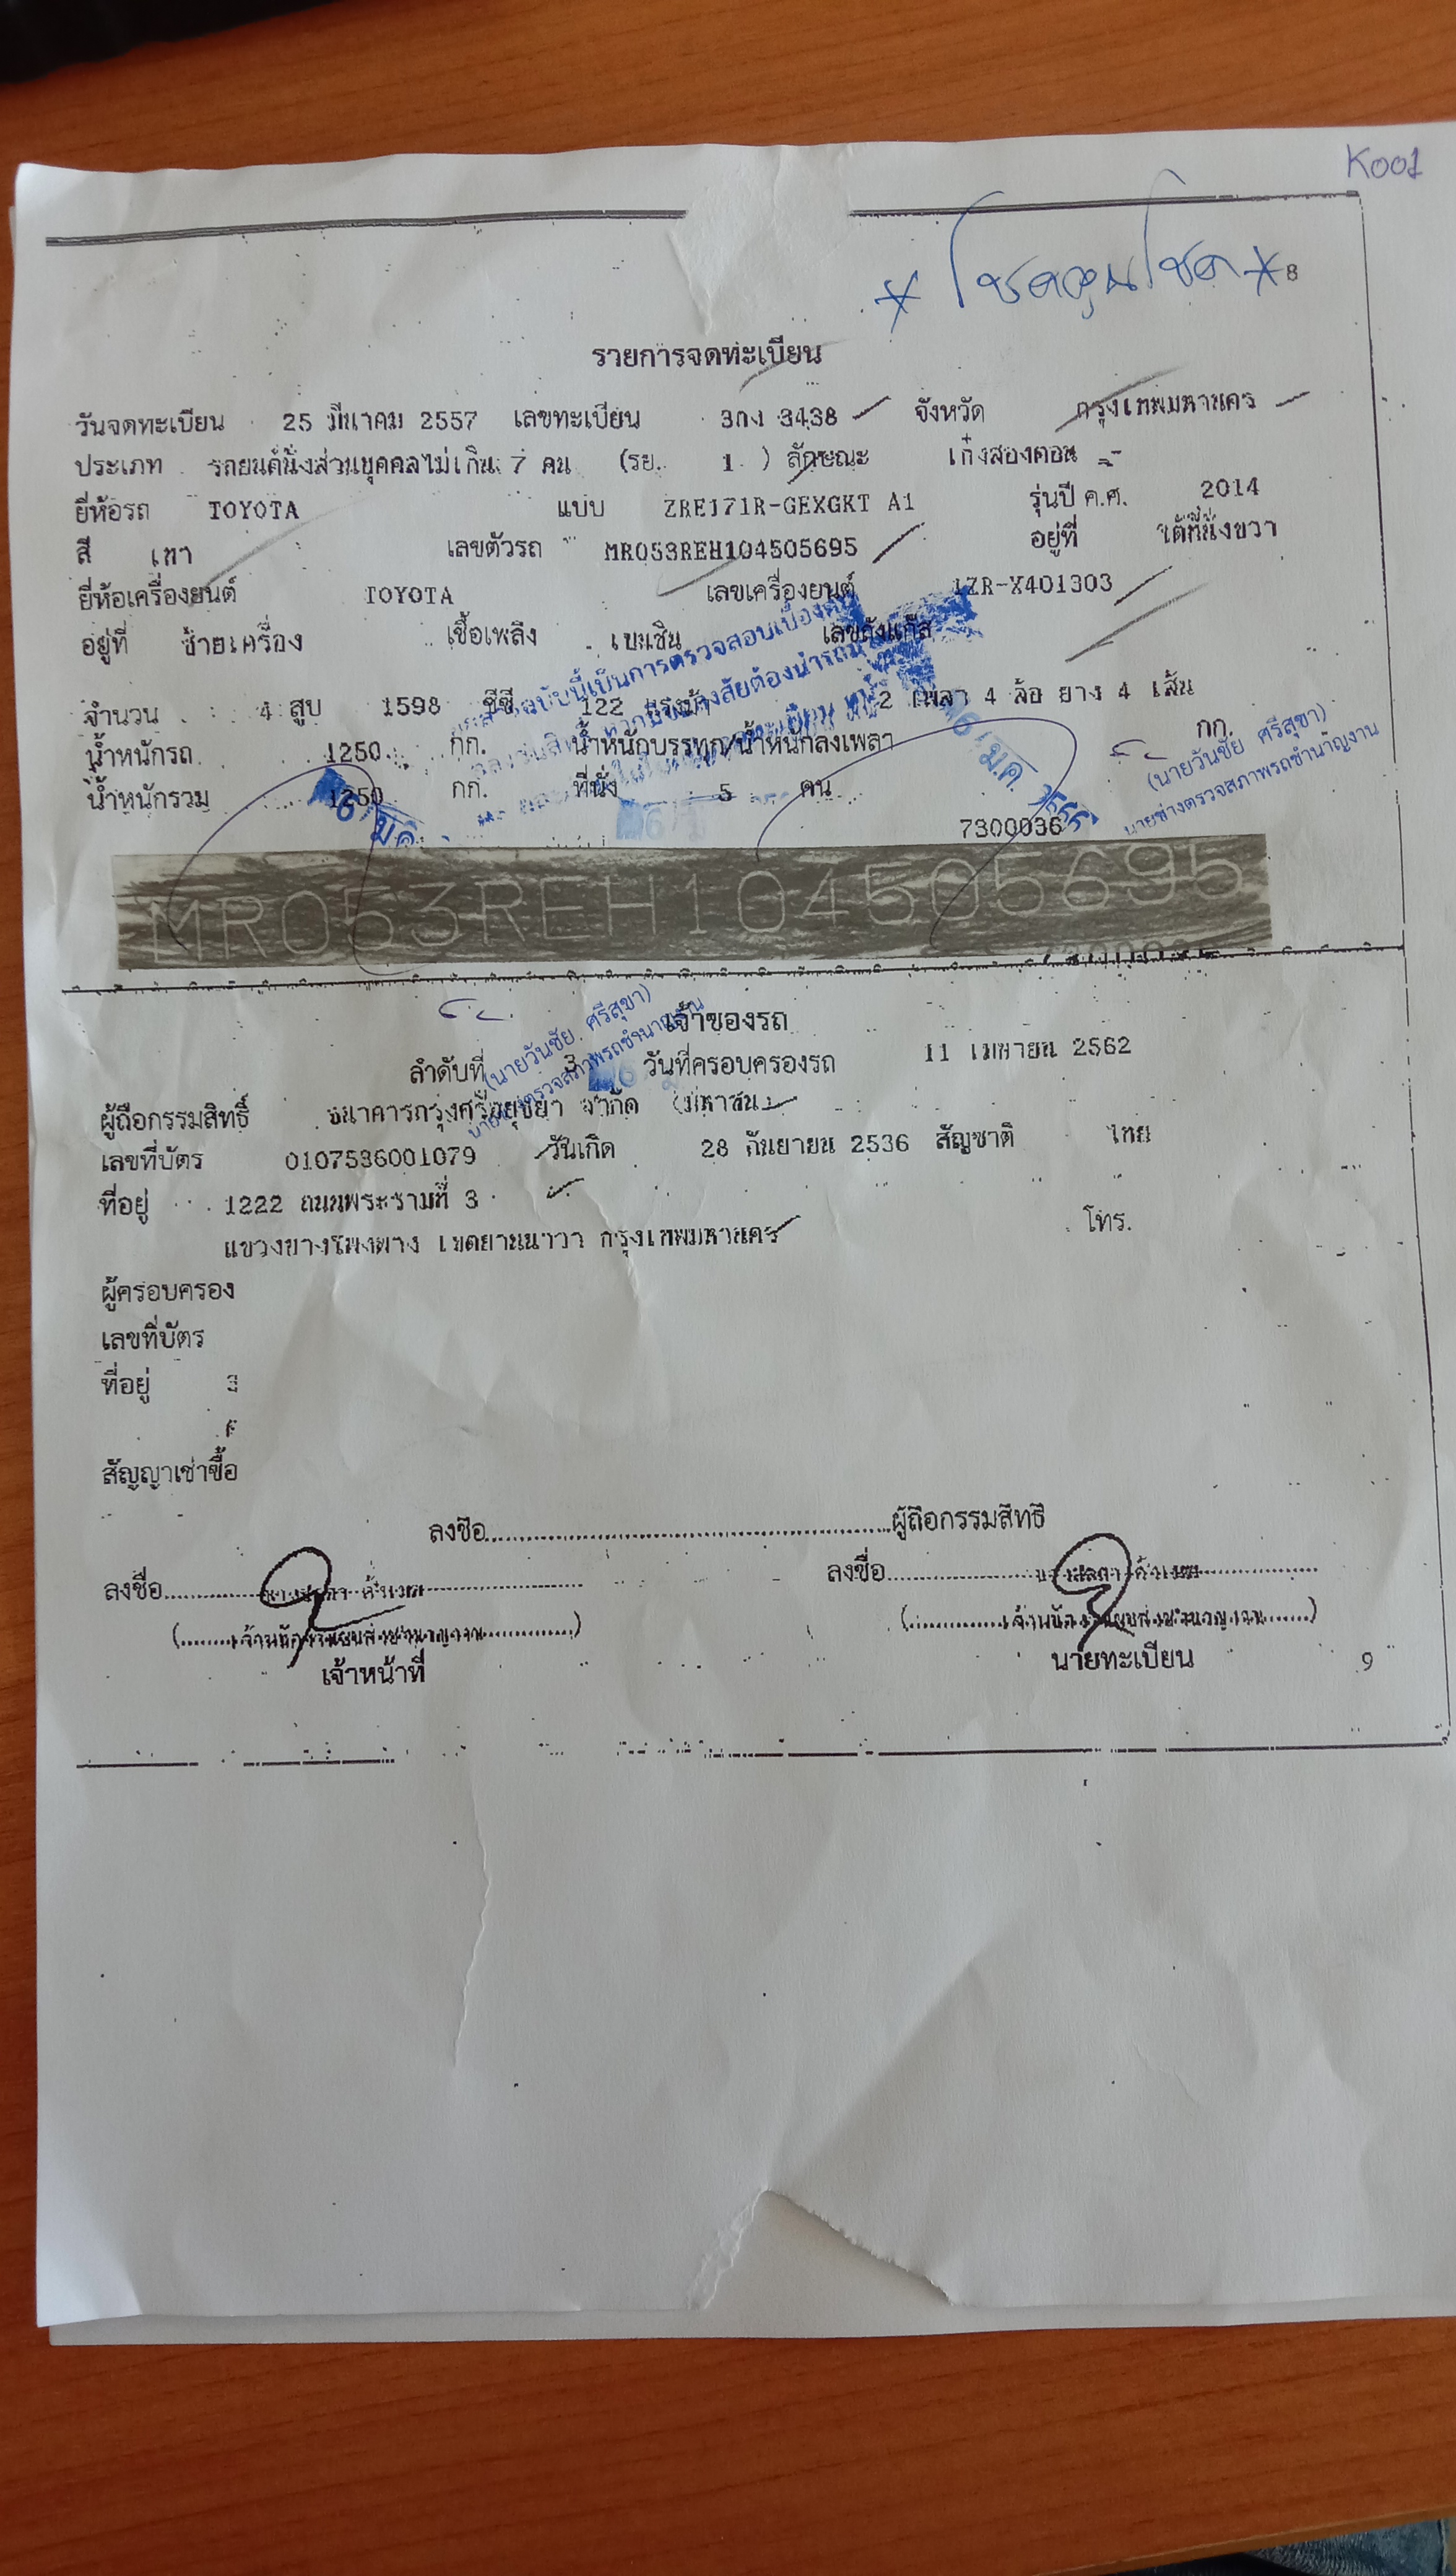 K001
* โชคคูนโชค *
8
รายการจดทะเบียน
วันจดทะเบียน 25 มีนาคม 2557 เลขทะเบียน 3กง 3438 จังหวัด กรุงเทพมหานคร
ประเภท รถยนต์นั่งส่วนบุคคลไม่เกิน 7 คน (รย. 1 ) ลักษณะ เก๋งสองตอน
ยี่ห้อรถ TOYOTA แบบ ZRE171R-GEXGKT A1 รุ่นปี ค.ศ. 2014
สี เทา เลขตัวรถ MR053REH104505695 อยู่ที่ ใต้ที่นั่งขวา
ยี่ห้อเครื่องยนต์ TOYOTA เลขเครื่องยนต์ 1ZR-X401303
อยู่ที่ ซ้ายเครื่อง เชื้อเพลิง เบนซิน เลขถังแก๊ส
จำนวน 4 สูบ 1598 ซีซี 122 แรงม้า 2 เพลา 4 ล้อ ยาง 4 เส้น
น้ำหนักรถ 1250 กก. น้ำหนักบรรทุก/น้ำหนักลงเพลา กก.
น้ำหนักรวม 1250 กก. ที่นั่ง 5 คน
(นายวันชัย ศรีสุขา)
นายช่างตรวจสภาพรถชำนาญงาน
7300036
MR053REH104505695
เจ้าของรถ
ลำดับที่ 3 วันที่ครอบครองรถ 11 เมษายน 2562
(นายวันชัย ศรีสุขา)
นายช่างตรวจสภาพรถชำนาญงาน
ผู้ถือกรรมสิทธิ์ ธนาคารกรุงศรีอยุธยา จำกัด (มหาชน)
เลขที่บัตร 0107536001079 วันเกิด 28 กันยายน 2536 สัญชาติ ไทย
ที่อยู่ 1222 ถนนพระรามที่ 3
แขวงบางโพงพาง เขตยานนาวา กรุงเทพมหานคร โทร.
ผู้ครอบครอง
เลขที่บัตร
ที่อยู่
สัญญาเช่าซื้อ
ลงชื่อ ผู้ถือกรรมสิทธิ์
ลงชื่อ ลงชื่อ
เจ้าหน้าที่ นายทะเบียน
9